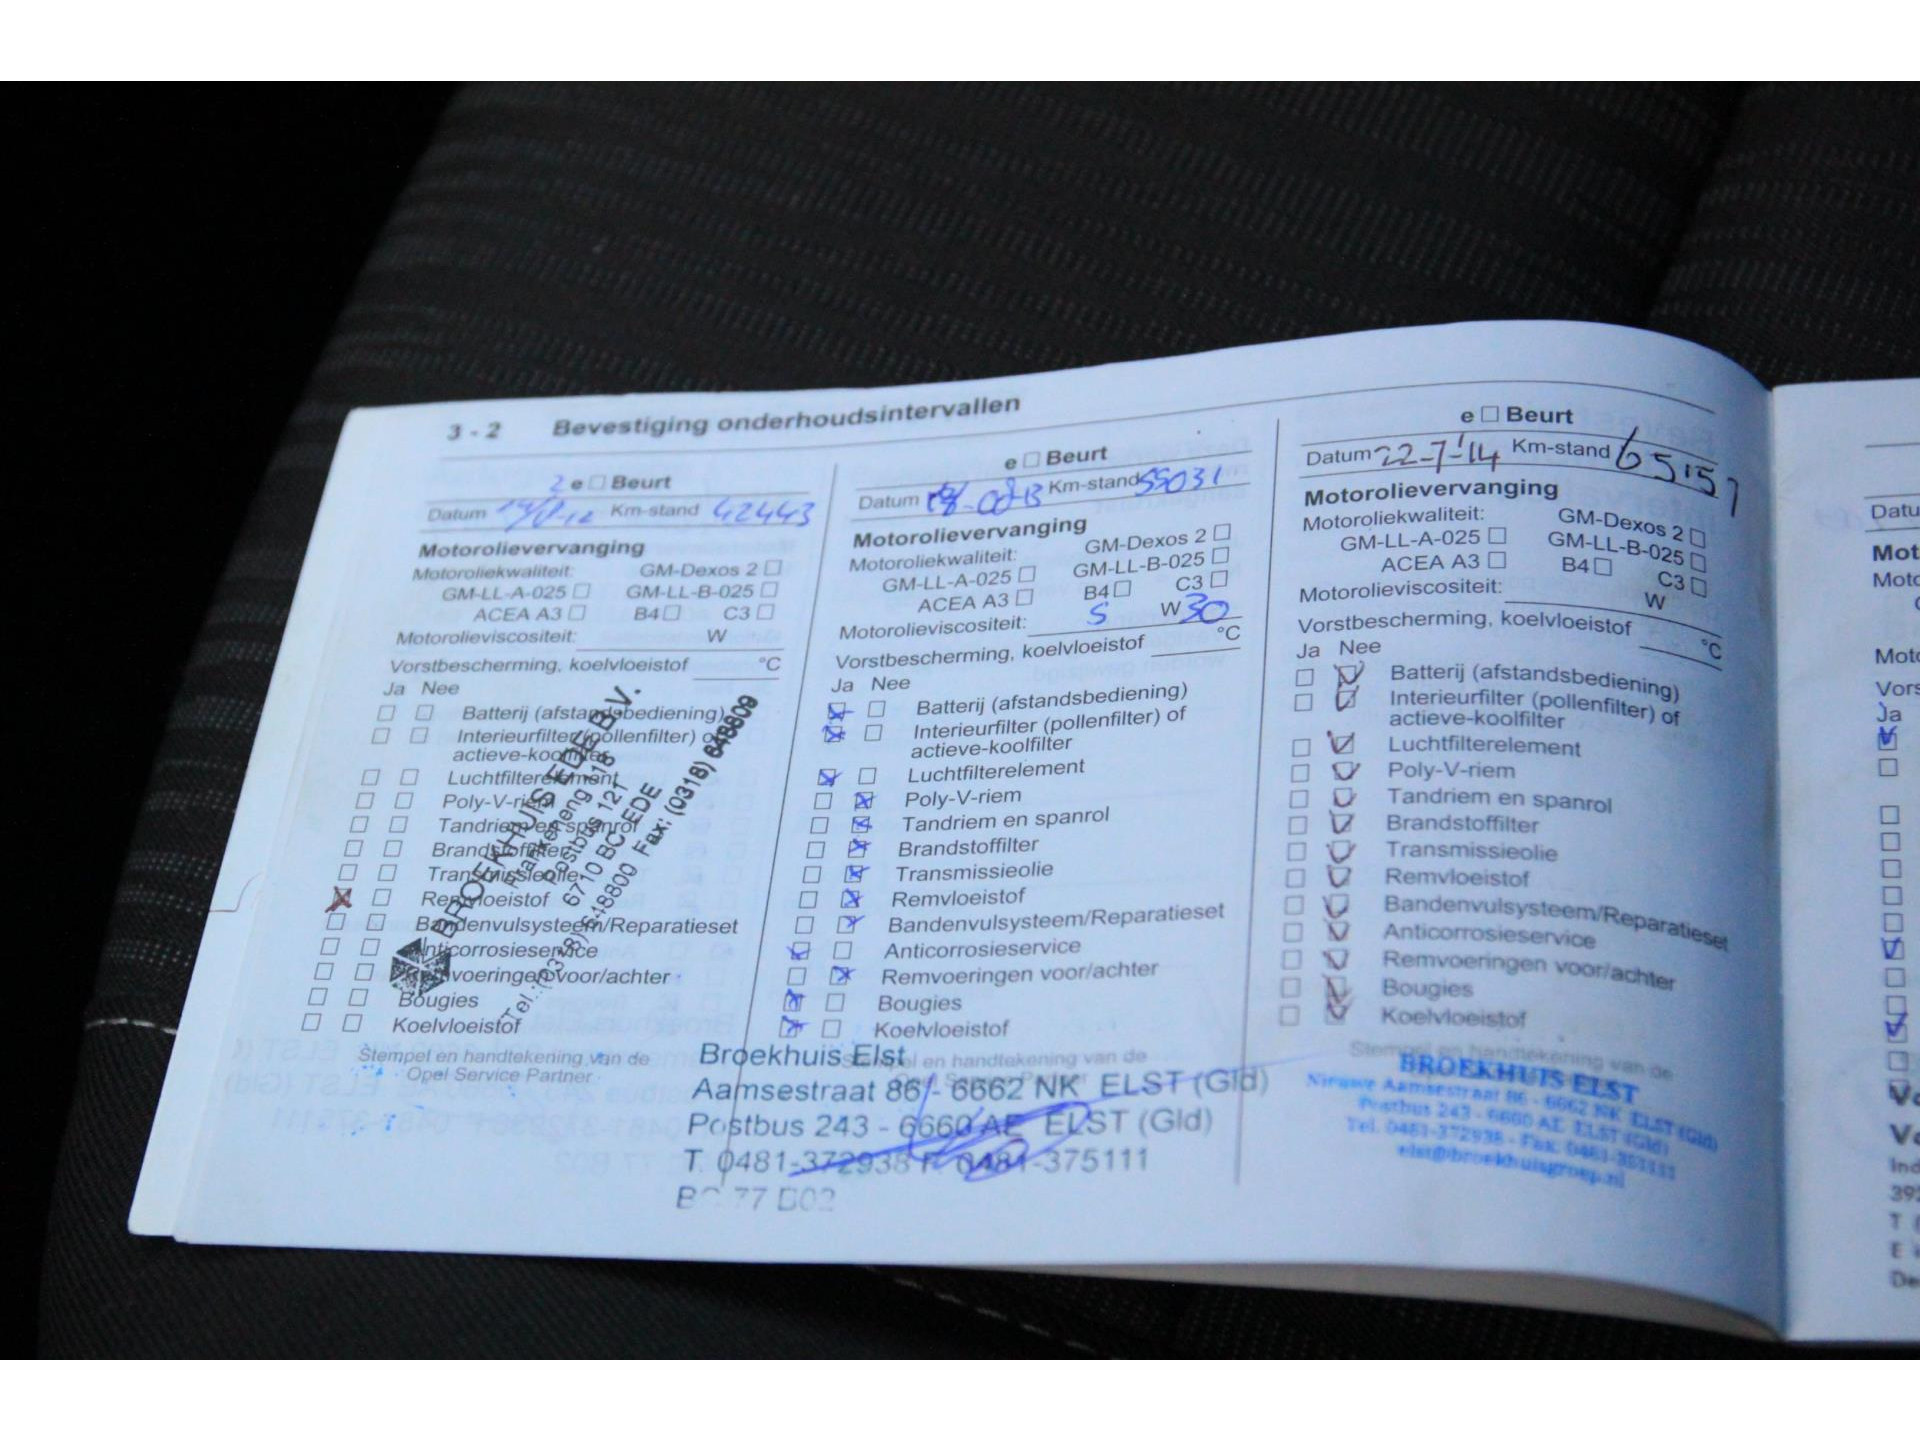 3 - 2 Bevestiging onderhoudsintervallen
2 e ☐ Beurt
Datum Km-stand 42443
Motorolievervanging
Motoroliekwaliteit: GM-Dexos 2 ☐
GM-LL-A-025 ☐ GM-LL-B-025 ☐
ACEA A3 ☐ B4 ☐ C3 ☐
Motorolieviscositeit: W
Vorstbescherming, koelvloeistof °C
Ja Nee
Batterij (afstandsbediening)
Interieurfilter (pollenfilter) of
actieve-koolfilter
Luchtfilterelement
Poly-V-riem
Tandriem en spanrol
Brandstoffilter
Transmissieolie
Remvloeistof
Bandenvulsysteem/Reparatieset
Anticorrosieservice
Remvoeringen voor/achter
Bougies
Koelvloeistof
Stempel en handtekening van de
Opel Service Partner
BROEKHUIS EDE B.V.
Frankeneng 118
Postbus 121
6710 BC EDE
Tel.: (0318) 648800 Fax: (0318) 648809
e ☐ Beurt
Datum -08-13 Km-stand 55031
Motorolievervanging
Motoroliekwaliteit: GM-Dexos 2 ☐
GM-LL-A-025 ☐ GM-LL-B-025 ☐
ACEA A3 ☐ B4 ☐ C3 ☐
Motorolieviscositeit: 5 W 30
Vorstbescherming, koelvloeistof °C
Ja Nee
Batterij (afstandsbediening)
Interieurfilter (pollenfilter) of
actieve-koolfilter
Luchtfilterelement
Poly-V-riem
Tandriem en spanrol
Brandstoffilter
Transmissieolie
Remvloeistof
Bandenvulsysteem/Reparatieset
Anticorrosieservice
Remvoeringen voor/achter
Bougies
Koelvloeistof
Stempel en handtekening van de
Opel Service Partner
Broekhuis Elst
Aamsestraat 86 - 6662 NK ELST (Gld)
Postbus 243 - 6660 AE ELST (Gld)
T. 0481-372938 F. 0481-375111
e ☐ Beurt
Datum 22-7-'14 Km-stand 65157
Motorolievervanging
Motoroliekwaliteit: GM-Dexos 2 ☐
GM-LL-A-025 ☐ GM-LL-B-025 ☐
ACEA A3 ☐ B4 ☐ C3 ☐
Motorolieviscositeit: W
Vorstbescherming, koelvloeistof °C
Ja Nee
Batterij (afstandsbediening)
Interieurfilter (pollenfilter) of
actieve-koolfilter
Luchtfilterelement
Poly-V-riem
Tandriem en spanrol
Brandstoffilter
Transmissieolie
Remvloeistof
Bandenvulsysteem/Reparatieset
Anticorrosieservice
Remvoeringen voor/achter
Bougies
Koelvloeistof
Stempel en handtekening van de
BROEKHUIS ELST
Nieuwe Aamsestraat 86 - 6662 NK ELST (Gld)
Postbus 243 - 6660 AE ELST (Gld)
Tel. 0481-372938 - Fax.
elst@broekhuisgroep.nl
Datu
Mot
Moto
Moto
Vors
Ja